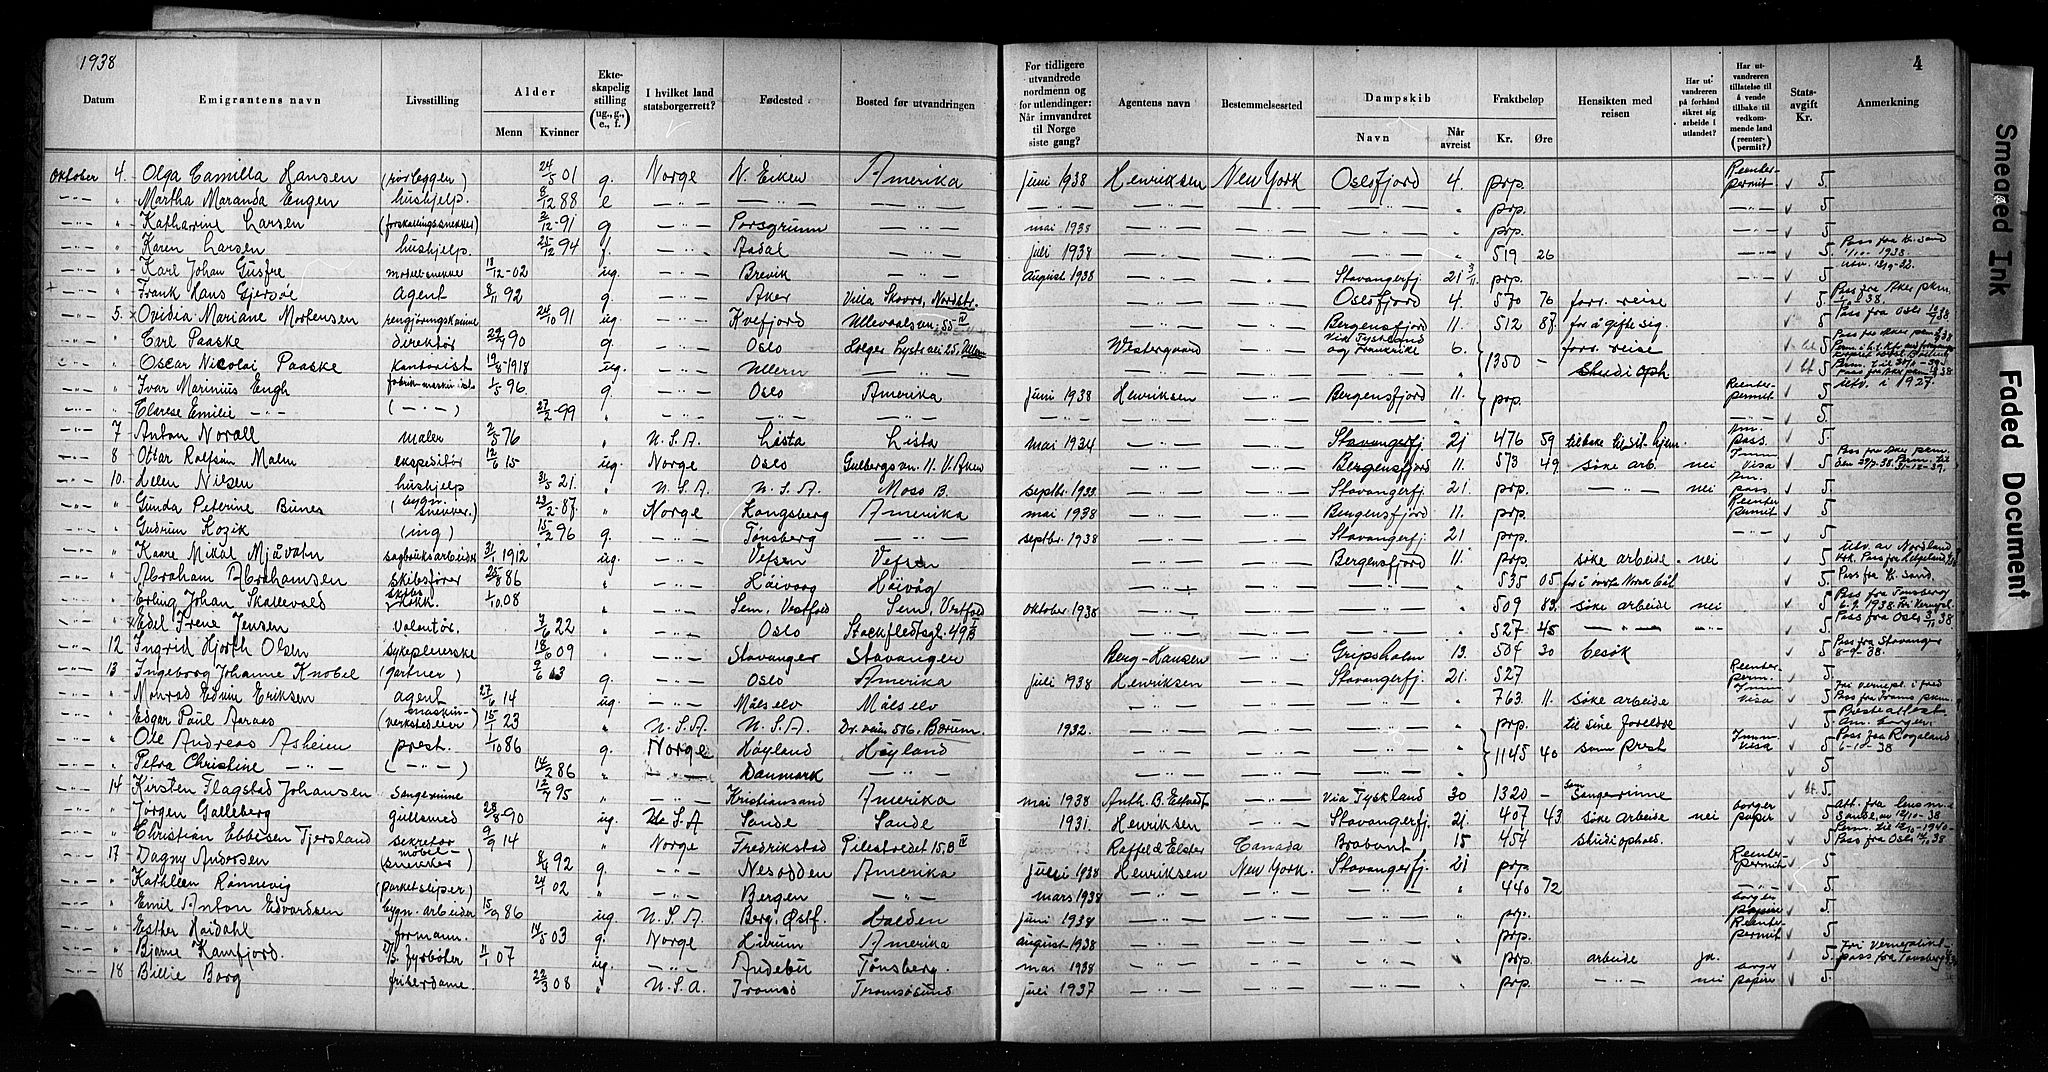 1938
4
Datum | Emigrantens navn | Livsstilling | Alder Menn | Kvinner | Ekteskapelig stilling (ug., g., e., f.) | I hvilket land statsborgerrett? | Fødested | Bosted før utvandringen | For tidligere utvandrede nordmenn og for utlendinger: Når innvandret til Norge siste gang? | Agentens navn | Bestemmelsessted | Dampskib Navn | Når avreist | Fraktbeløp Kr. | Øre | Hensikten med reisen | Har utvandreren på forhånd sikret sig arbeide i utlandet? | Har utvandreren tillatelse til å vende tilbake til vedkommende land (reenter-permit)? | Statsavgift Kr. | Anmerkning
Oktober 4. Olga Camilla Hansen (rørleggen) 24/5 01 g. Norge N. Eiken Amerika juni 1938 Henriksen New York Oslofjord 4. prp. Reenterpermit 5
" Martha Maranda Engen hushjelp. 8/12 88 e prp. 5
" Katharine Larsen 2/12-91 g Porsgrunn mai 1938 prp. 5
" Karen Larsen hushjelp. 25/12 94 f. Aadal juli 1938 519 26 5 Pass fra K. sand
" Karl Johan Gusfre 13/12-02 ug. Brevik August 1938 Stavangerfj. 21 prp. 5
" Frank Hans Gjersøe agent 8/11 92 g. Aker Villa Skovro, Nordstr. Oslofjord 4. 570 76 forr. reise 5 Pass fra Aker pkm.
5. x Ovidia Mariane Mortensen rengjøringskvinne 24/10 91 ug. Kvefjord Ullevaalsvn. 55 IV Bergensfjord 11. 512 87 for å gifte sig. 5 Pass fra Oslo
" Carl Paaske direktør 29/9 90 " Oslo Holger Lysts vei 25, Ullern Westergaard Via Tyskland og Frankrike 6. 1350 - forr. reise 5
" Oscar Nicolai Paaske kontorist 19/8-1918 ug. Ullern studieoph 5
" Ivar Marinius Engh 1/5 96 g. Oslo Amerika juni 1938 Henriksen Bergensfjord 11. prp. Reenterpermit 5 Utv. i 1927.
" Clarese Emilie 27/2-99 5
" 7 Anton Norall maler 2/5 76 " U.S.A. Lista Lista mai 1934 Stavangerfj. 21 476 59 tilbake til sit hjem. Am. pass. 5
" 8 Ottar Rolfsøn Malm ekspeditør 12/6 15 ug. Norge Oslo Gulbergs vn. 11. V. Aker Bergensfjord 11. 573 49 søke arb. nei Imm visa 5
" 10. Ellen Nilsen hushjelp 31/5 21. " U.S.A. U.S.A. Moss B. septbr. 1933 Stavangerfj. 21. prp. nei Am. pass. 5
" Gunda Peterine Bunes (bygn. snekker.) 23/2-87. " Norge Kongsberg Amerika mai 1938 Bergensfjord 11. prp. Reenter permit 5
" Gudrun Kozik (ing) 15/2 96 g. Tønsberg septbr. 1938 Stavangerfj. 21 prp. 5
" Kaare Mikal Mjåvatn sagbruksarbeider 31/1 1912 ug. Vefsen Vefsen Bergensfjord 11. prp. søke arbeide. nei 5 Utv. av Nordland
" Abraham Abrahamsen skibsfører 25/8 86 " Håivaag Håivåg 535 05 5 Pass fra K. sand.
" Erling Johan Skallevold skibskokk. 1/10.08 " Sem, Vestfold Sem, Vestfold oktober 1938 509 83. søke arbeide nei 5 Pass fra Tønsberg 6.9.1938.
" x Edel Irene Jensen volontør. 9/6 22 " Oslo Stockfledtsgt. 49 B 527 45 5 Pass fra Oslo
12 Ingrid Hjorth Olsen sykepleierske 18/6 09 " Stavanger Stavanger Berg-Hansen Gripsholm 13. 504 30 besøk 5 Pass fra Stavanger 8-9-38.
13 Ingeborg Johanne Knobel (gartner) g. Oslo Amerika juli 1938 Henriksen Stavangerfj. 21. 527 Reenter perm. 5
" Monrad Edvin Eriksen agent 27/6 14 ug. Målselv Målselv 763 11. søke arbeide Imm visa 5 Pass fra Troms pkm.
" Edgar Paul Aaraas (maskinverkstedeier) 15/1 23 " U.S.A. U.S.A. 1932. prp. til sine foreldre 5 Presteattest. Am. borger.
" Ole Andreas Asheim prest. 1/10 86 g. Norge Høyland Høyland 1145 40 som prest Imm visa 5 Pass fra Rogaland 6-10-38
" Petra Christine 14/2 86 " Danmark 5
14 Kirsten Flagstad Johansen Sangerinne 12/7 95 " Kristiansand Amerika mai 1938 Anth. B. Via Tyskland 30 1320 - Som sangerinne 5.
" Jørgen Galleberg gullsmed 28/8-90 ug. U.S.A Sande Sande 1931. Henriksen Stavangerfj. 21. 407 43 søke arbeide nei borger papir 5 Att. fra lensm. i Sande
" Christian Ebbesen Tjersland sekretær 9/9 14 " Norge Fredrikstad Pilestredet 15.B IV Raffel & Elster Canada Brabant 15 454 studieophold. 5 Pass fra Oslo
17 Dagny Andersen (møbelsnekker) 8/4 92 g. Nesodden Amerika juli 1938 Henriksen New York. Stavangerfj. 21 prp. Reenter permit 5
" Kathleen Rønnevig (parketsliper) 24/1 02 " Bergen mars 1938 440 72 5
" Emil Anton Edvardsen bygn. arbeider 15/9 86 ug. U.S.A. Berg Østf. Halden juni 1938 prp. borger papir 5
" Esther Haidahl formann. 14/5 03 g. Norge Hurum Amerika august 1938 prp. Reenter permit 5
" Bjarne Kamfjord. fyrbøter 11/1 07 ug. Andebu Tønsberg. mai 1938 prp. arbeide ja. 5 Fri verneplikt. pass fra Tønsberg
18 Billie Borg friserdame. 22/3 08 " U.S.A. Tromsø Tromsøsund juli 1937 prp. nei borger papir 5
Smeared Ink
Faded Document